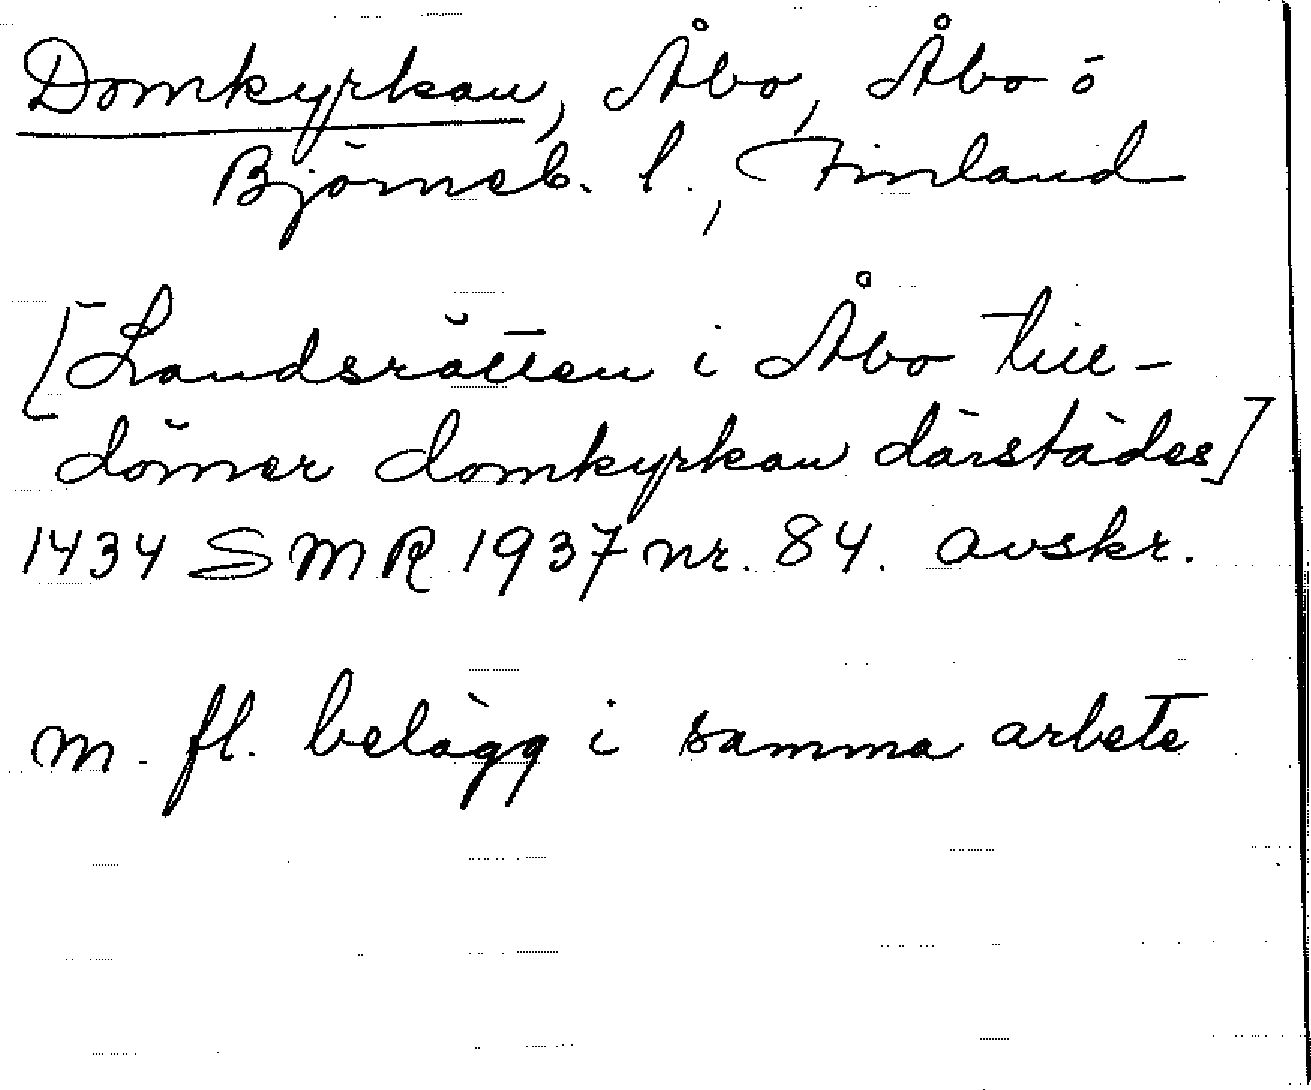 Domkyrkan, Åbo, Åbo o
Björneb. l., Finland
[Landsrätten i Åbo till-
dömer domkyrkan därstädes]
1434 SMR 1937 nr. 84. avskr.
m. fl. belägg i samma arbete